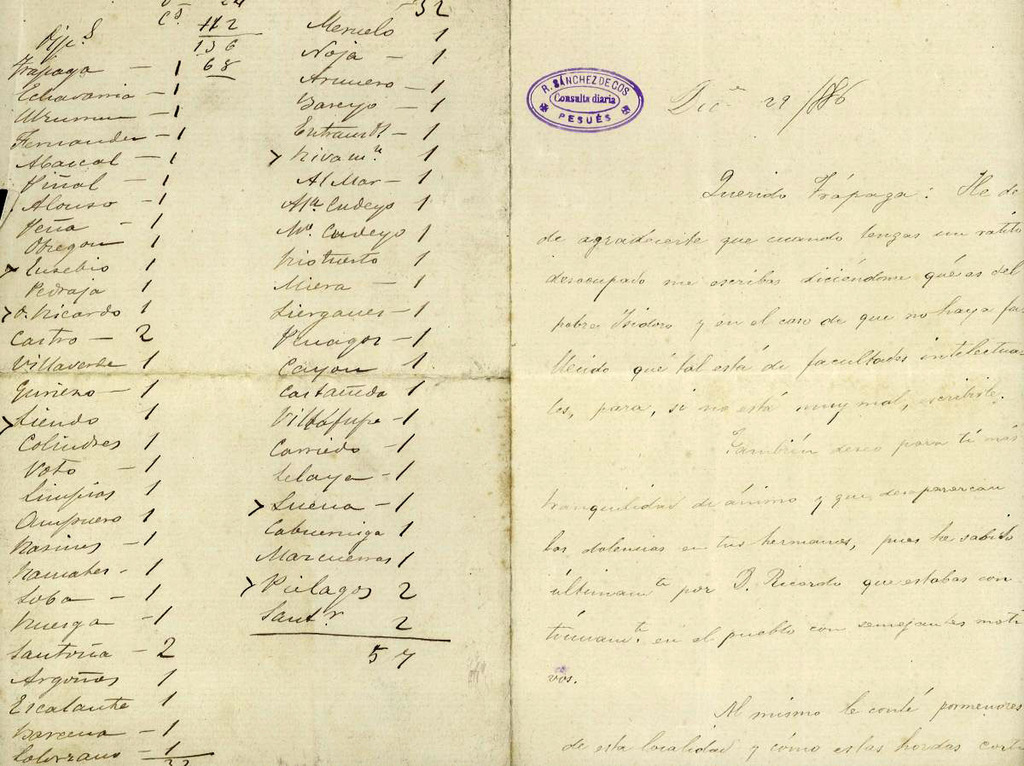 C.s 112
Dip.s 136
Trápaga — 1 68
Echavarria — 1
Fernandez — 1
Abascal — 1
Piñal — 1
Alonso — 1
Peña 1
Obregon 1
> Eusebio 1
Pedraja 1
> D. Ricardo 1
Castro — 2
Villaverde 1
Guriezo — 1
> Liendo 1
Colindres 1
Voto — 1
Limpias 1
Ampuero 1
Rasines — 1
Ramales — 1
Soba — 1
Ruesga — 1
Santoña — 2
Argoños 1
Escalante 1
Barcena — 1
Solorzano — 1
32
32
Meruelo 1
Noja — 1
Arnuero 1
Bareyo 1
Entramb.s — 1
> Rivam.n 1
Al Mar — 1
M.a Cudeyo 1
Riotuerto 1
Miera — 1
Lierganes — 1
Penagos — 1
Cayon 1
Castañeda 1
Villafufre — 1
Carriedo 1
Selaya — 1
> Luena — 1
Cabuerniga 1
Mazcuerras 1
> Piélagos 2
Sant.r 2
57
R. SÁNCHEZ DE COS
Consulta diaria
PESUÉS
Dic.e 29/886
Querido Trápaga: He de
de agradecerte que cuando tengas un ratito
desocupado me escribas diciéndome qué es del
pobre Isidoro y en el caso de que no haya fa-
llecido qué tal está de facultades intelectua-
les, para, si no está muy mal, escribirle.
También deseo para tí más
tranquilidad de ánimo y que desaparezcan
las dolencias en tus hermanos, pues he sabido
últimam.te por D. Ricardo que estabas con-
tínuam.te en el pueblo con semejantes moti-
vos.
Al mismo le conté pormenores
de esta localidad y cómo estas hordas